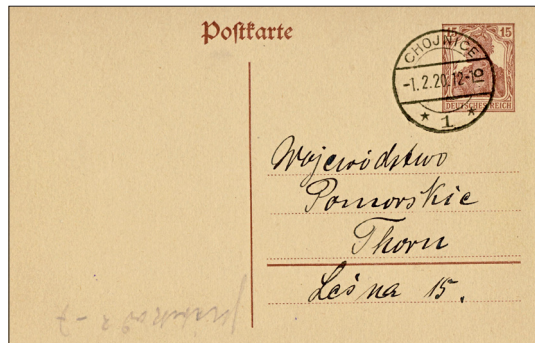 Postkarte
15 15
CHOJNICE
-1.2.20.12-
* 1 *
DEUTSCHES REICH
Wojewódstwo
Pomorskie
Thorn
Leśna 15.